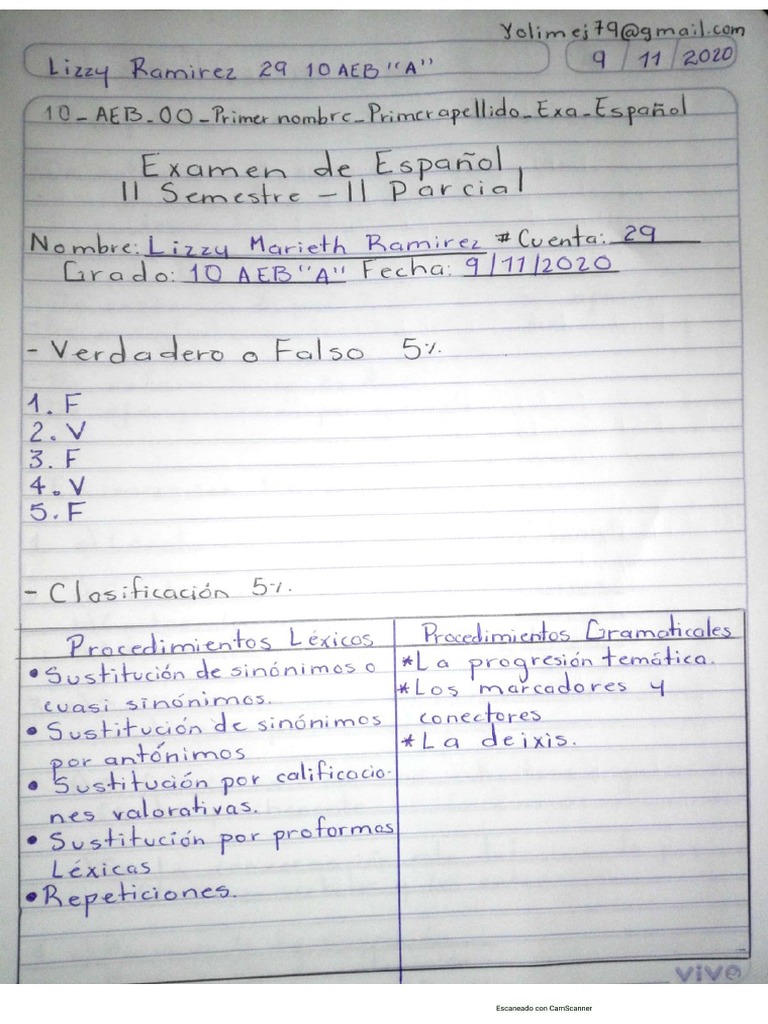 Yolimej79@gmail.com
Lizzy Ramirez 29 10 AEB "A" 9 / 11 / 2020
10_AEB_00_Primer nombre_Primer apellido_Exa_Español
Examen de Español
II Semestre - II Parcial
Nombre: Lizzy Marieth Ramirez # Cuenta: 29
Grado: 10 AEB "A" Fecha: 9/11/2020
- Verdadero o Falso 5%
1. F
2. V
3. F
4. V
5. F
- Clasificación 5%.
Procedimientos Léxicos
• Sustitución de sinónimos o
cuasi sinónimos.
• Sustitución de sinónimos
por antónimos
• Sustitución por calificacio-
nes valorativas.
• Sustitución por proformas
Léxicas
• Repeticiones.
Procedimientos Gramaticales
* La progresión temática.
* Los marcadores y
conectores
* La deixis.
vivo
Escaneado con CamScanner